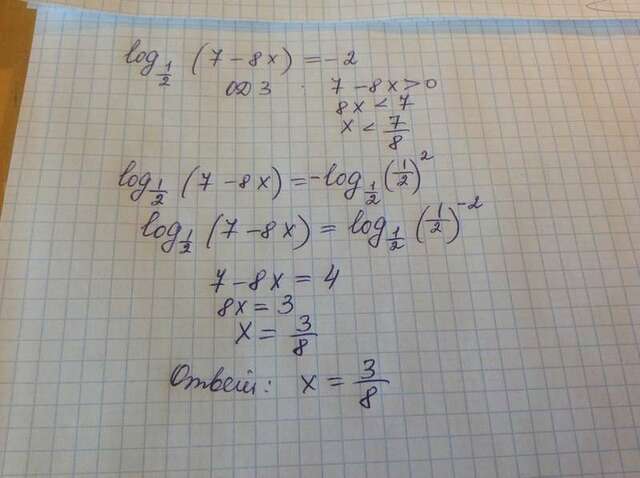 log_{1/2} (7 - 8x) = -2
ОДЗ 7 - 8x > 0
8x < 7
x < 7/8
log_{1/2} (7 - 8x) = -log_{1/2} (1/2)^2
log_{1/2} (7 - 8x) = log_{1/2} (1/2)^{-2}
7 - 8x = 4
8x = 3
x = 3/8
Ответ: x = 3/8